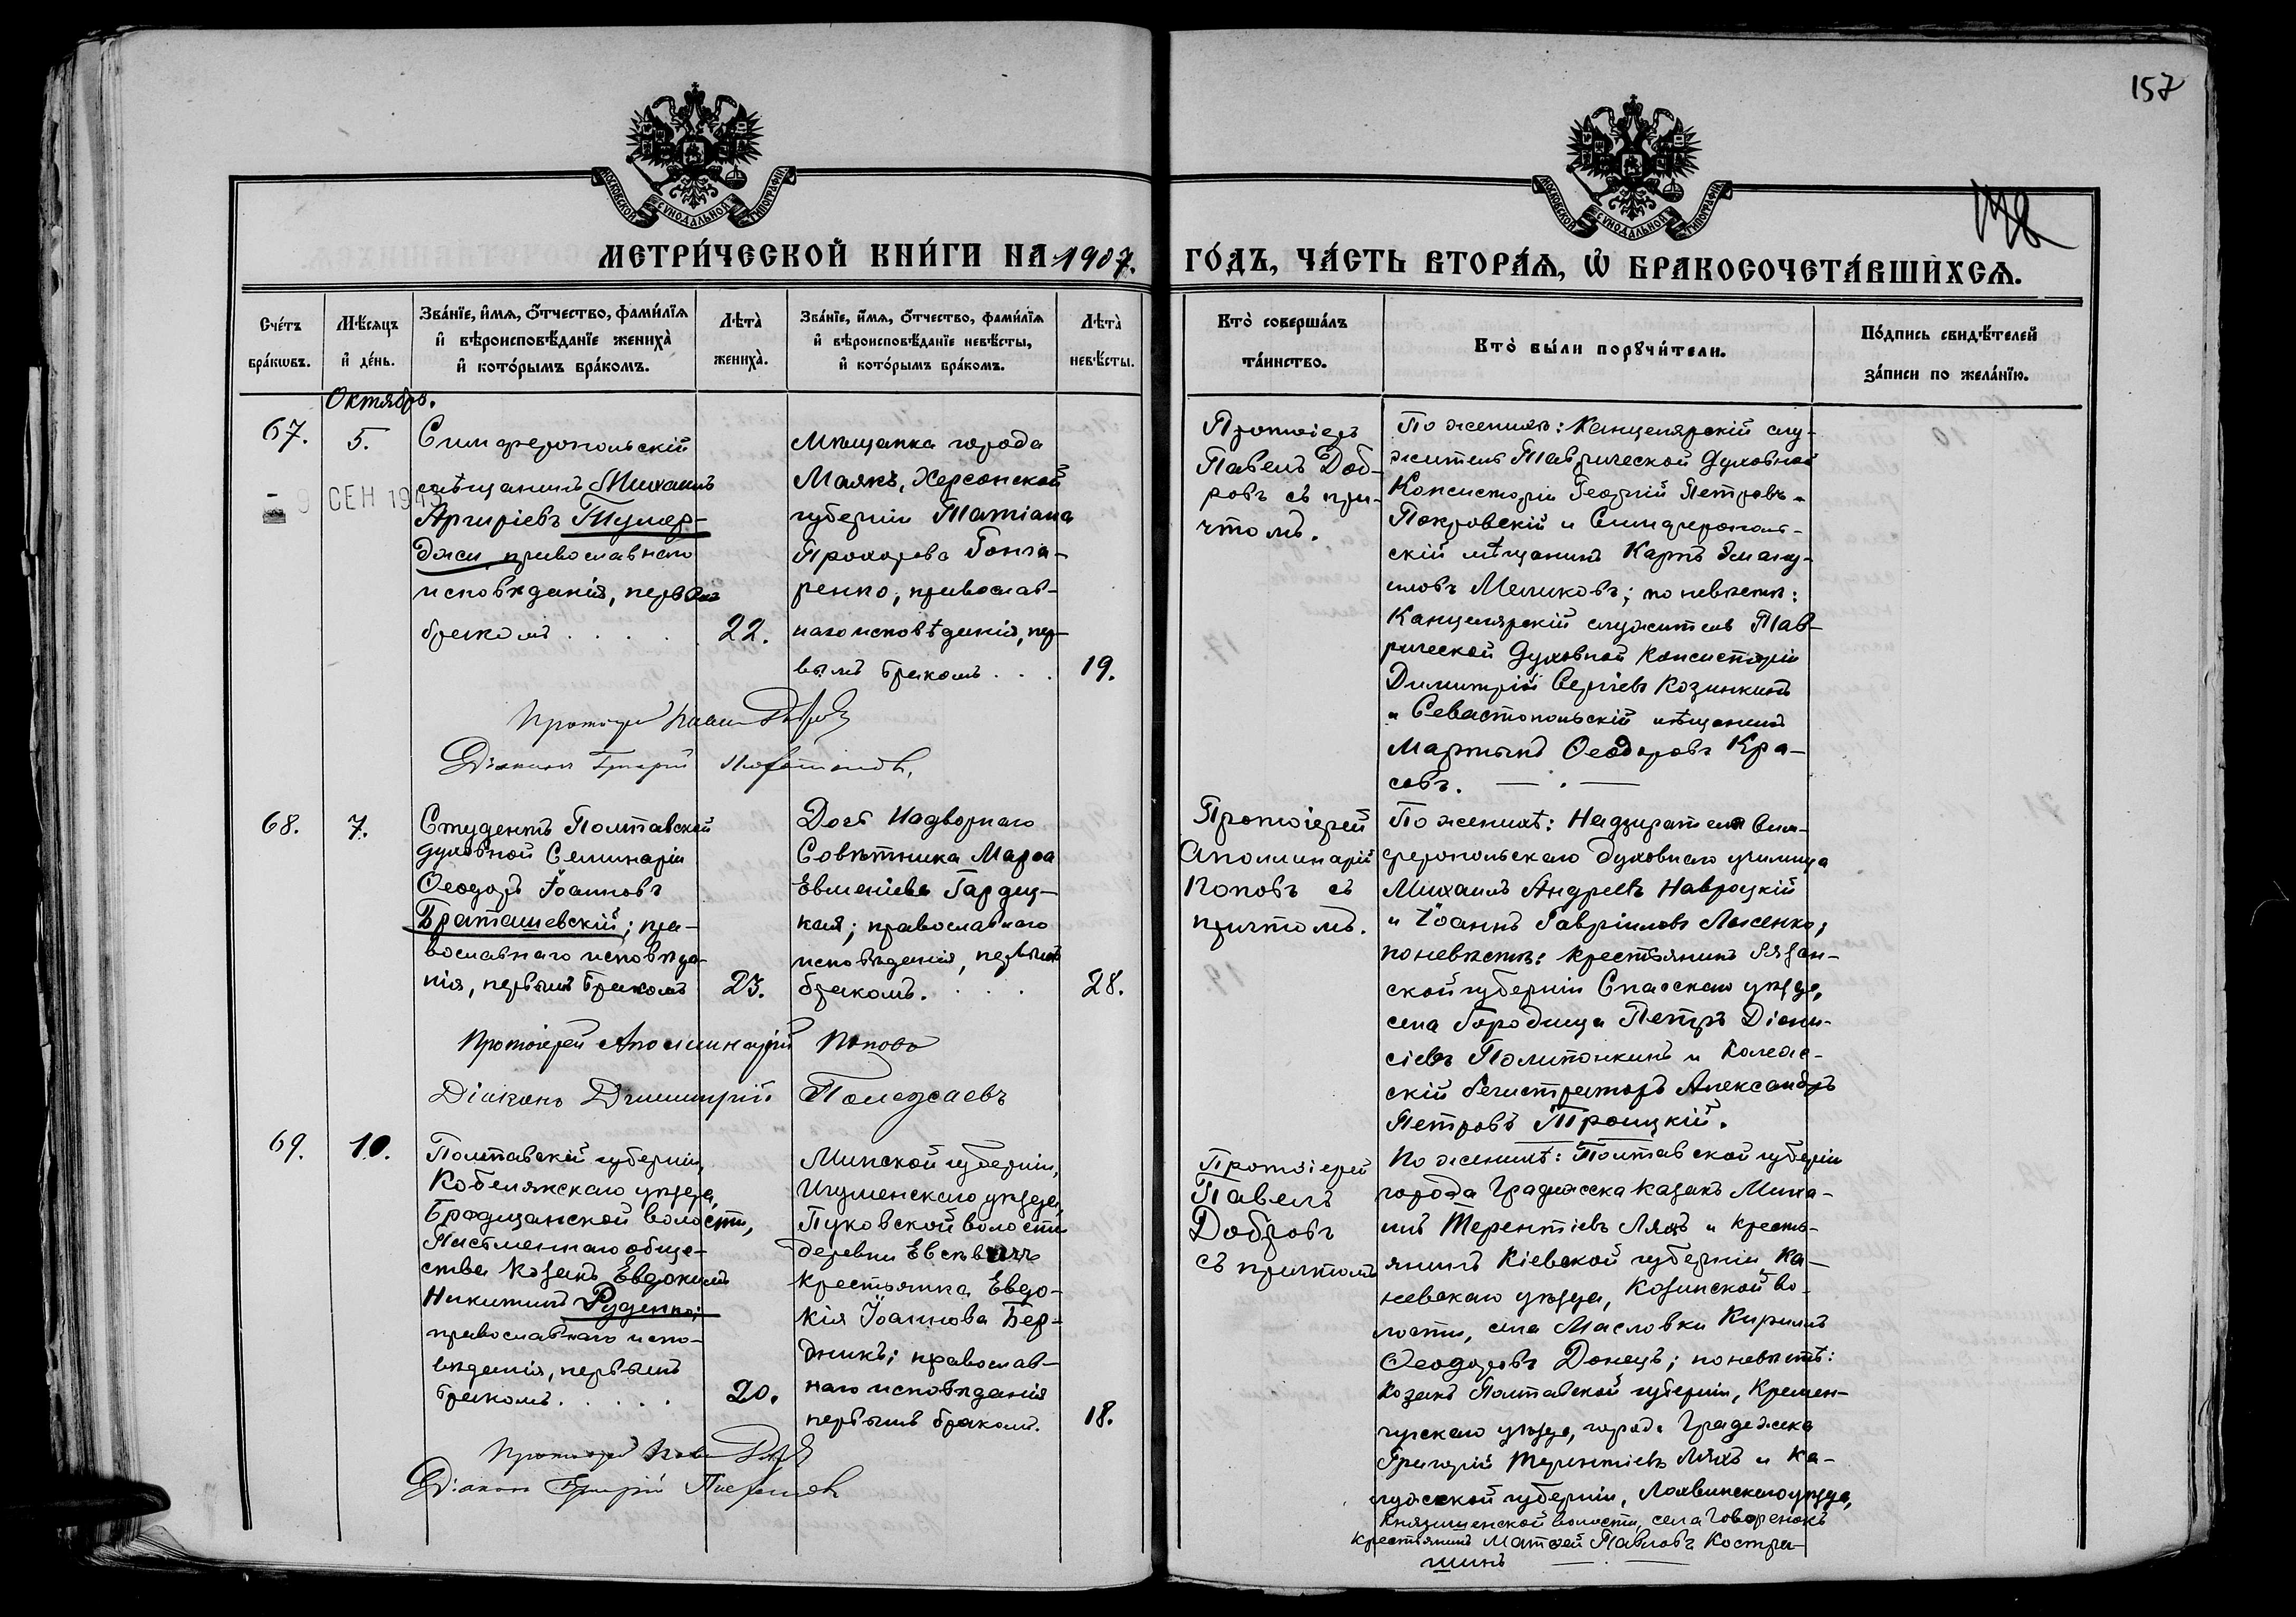 157
МОСКОВСКОЙ СѴНОДАЛЬНОЙ ТИПОГРАФІИ
МОСКОВСКОЙ СѴНОДАЛЬНОЙ ТИПОГРАФІИ
МЕТРИ́ЧЕСКОЙ КНИ́ГИ НА 1907.
ГО́ДЪ, ЧА́СТЬ ВТОРА́Ѧ, Ѽ БРАКОСОЧЕТА́ВШИХСѦ.
Сче́тъ бра́кѡвъ.
Мѣ́сяцъ и҆ де́нь.
Зва́нїе, и҆́мѧ, ѻ҆́тчество, фами́лїѧ
и҆ вѣроисповѣ́данїе жениха̀
и҆ кото́рымъ бра́комъ.
Лѣта̀ жениха̀.
Зва́нїе, и҆́мѧ, ѻ҆́тчество, фами́лїѧ
и҆ вѣроисповѣ́данїе невѣ́сты,
и҆ кото́рымъ бра́комъ.
Лѣта̀ невѣ́сты.
Кто̀ соверша́лъ та́инство.
Кто̀ бы́ли порꙋчи́тели.
По́дпись свидѣ́телей
за́писи по жела́нїю.
Октября.
67.
5.
- 9 СЕН 194
Симферопольскій
мѣщанинъ Михаилъ
Аргиріевъ Тумер-
джи, православнаго
исповѣданія, первымъ
бракомъ . . . .
22.
Мѣщанка города
Маякъ, Херсонской
губерніи Татіана
Прохорова Гонча-
ренко, православ-
наго исповѣданія, пер-
вымъ бракомъ . . .
19.
Протоіерей Павелъ Добровъ
Діаконъ Григорій
Протоіерей
Павелъ Доб-
ровъ съ при-
чтомъ.
По женихѣ: Канцелярскій слу-
житель Таврической Духовной
Консисторіи Георгій Петровъ
Покровскій и Симферополь-
скій мѣщанинъ Карпъ Эману-
иловъ Меликовъ; по невѣстѣ:
Канцелярскій служитель Тав-
рической Духовной Консисторіи
Димитрій Сергіевъ Козинкинъ
и Севастопольскій мѣщанинъ
Мартынъ Ѳеодоровъ Кра-
совъ.
68.
7.
Студентъ Полтавской
духовной Семинаріи
Ѳеодоръ Іоанновъ
Браташевскій; пра-
вославнаго исповѣда-
нія, первымъ бракомъ
23.
Дочь Надворнаго
Совѣтника Марѳа
Евменіева Гардиц-
кая; православнаго
исповѣданія, первымъ
бракомъ. . . .
28.
Протоіерей Аполлинарій Поповъ
Діаконъ Димитрій Полежаевъ
Протоіерей
Аполлинарій
Поповъ съ
причтомъ.
По женихѣ: Надзиратель Сим-
феропольскаго духовнаго училища
Михаилъ Андреевъ Навроцкій
и Іоаннъ Гавріиловъ Лысенко;
по невѣстѣ: крестьянинъ Рязан-
ской губерніи Спасскаго уѣзда,
села Городища Петръ Діони-
сіевъ Политонкинъ и Коллеж-
скій Регистраторъ Александръ
Петровъ Троицкій.
69.
10.
Полтавской губерніи,
Кобелякскаго уѣзда,
Бродщанской волости,
Письменнаго обще-
ства козакъ Евдокимъ
Никитинъ Руденко;
православнаго испо-
вѣданія, первымъ
бракомъ. . . . .
20.
Минской губерніи,
Игуменскаго уѣзда,
Пуковской волости
деревни
крестьянка Евдо-
кія Іоаннова Бер-
дникъ; православ-
наго исповѣданія
первымъ бракомъ.
18.
Протоіерей Павелъ Добровъ
Діаконъ Григорій
Протоіерей
Павелъ
Добровъ
съ причтомъ
По женихѣ: Полтавской губерніи
города Градижска казакъ Миха-
илъ Терентіевъ Ляхъ и кресть-
янинъ Кіевской губерніи Ка-
невскаго уѣзда, Козинской во-
лости, села Масловки Кириллъ
Ѳеодоровъ Донецъ; по невѣстѣ:
Козакъ Полтавской губерніи, Кремен-
чугскаго уѣзда, города Градижска
Григорій Терентіевъ Ляхъ и Ка-
лужской губерніи, Лихвинскаго уѣзда,
Князищенской волости, села Говоренокъ
крестьянинъ Матѳей Павловъ Костри-
шинъ